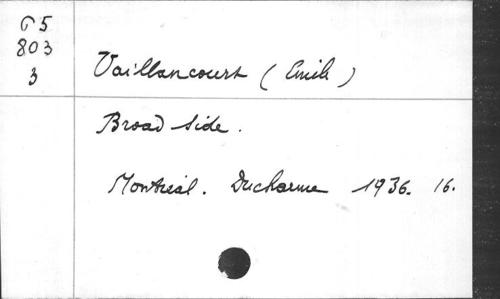 65
803
3
Vaillancourt (Emile)
Broad side.
Montreal. Ducharme 1936. 16.